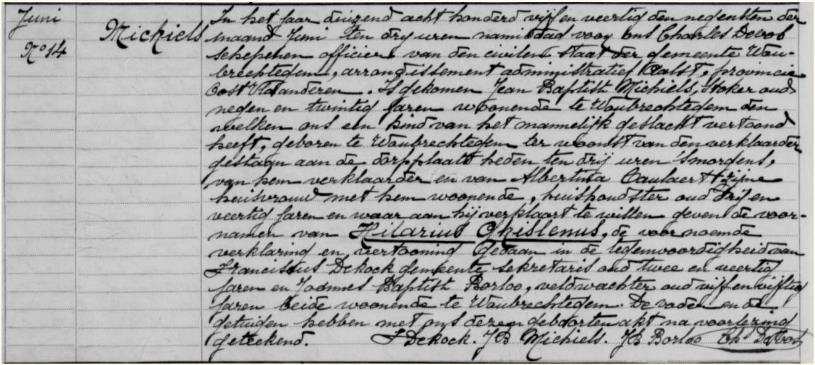 Juni
N° 14
Michiels
In het jaar duizend acht honderd vijf en veertig den negensten der
maand Juni ten dry uren namiddag voor ons Charles De Vos
schepenen officier van den civilen staat der gemeente Wau-
brechtegem, arrondissement administratief Aalst, provincie
Oost Vlaanderen. Is gekomen Jean Baptist Michiels, Stoker oud
negen en twintig jaren woonende te Waubrechtegem den
welken ons een kind van het mannelijk geslacht vertoond
heeft, geboren te Waubrechtegem ter woonst van den verklaarder
gestaan aan de dorpplaats heden ten drij uren smorgens,
van hem verklaarder en van Albertina Caulaert zijne
huisvrouw met hem woonende, huishoudster oud drij en
veertig jaren en waar aan hij verklaart te willen geven de voor-
namen van Hilarius Ghislenus, de voornoemde
verklaring en vertooning gedaan in de tegenwoordigheid van
Franciscus De Kock gemeente sekretaris oud twee en veertig
jaren en Joannes Baptist Borloo, veldwachter oud vijf en vijftig
jaren beide woonende te Waubrechtegem. De vader en de
getuigen hebben met ons dezen geboorten akt na voorlezing
geteekend. F Dekock. JB Michiels. JB Borloo Chs De Vos